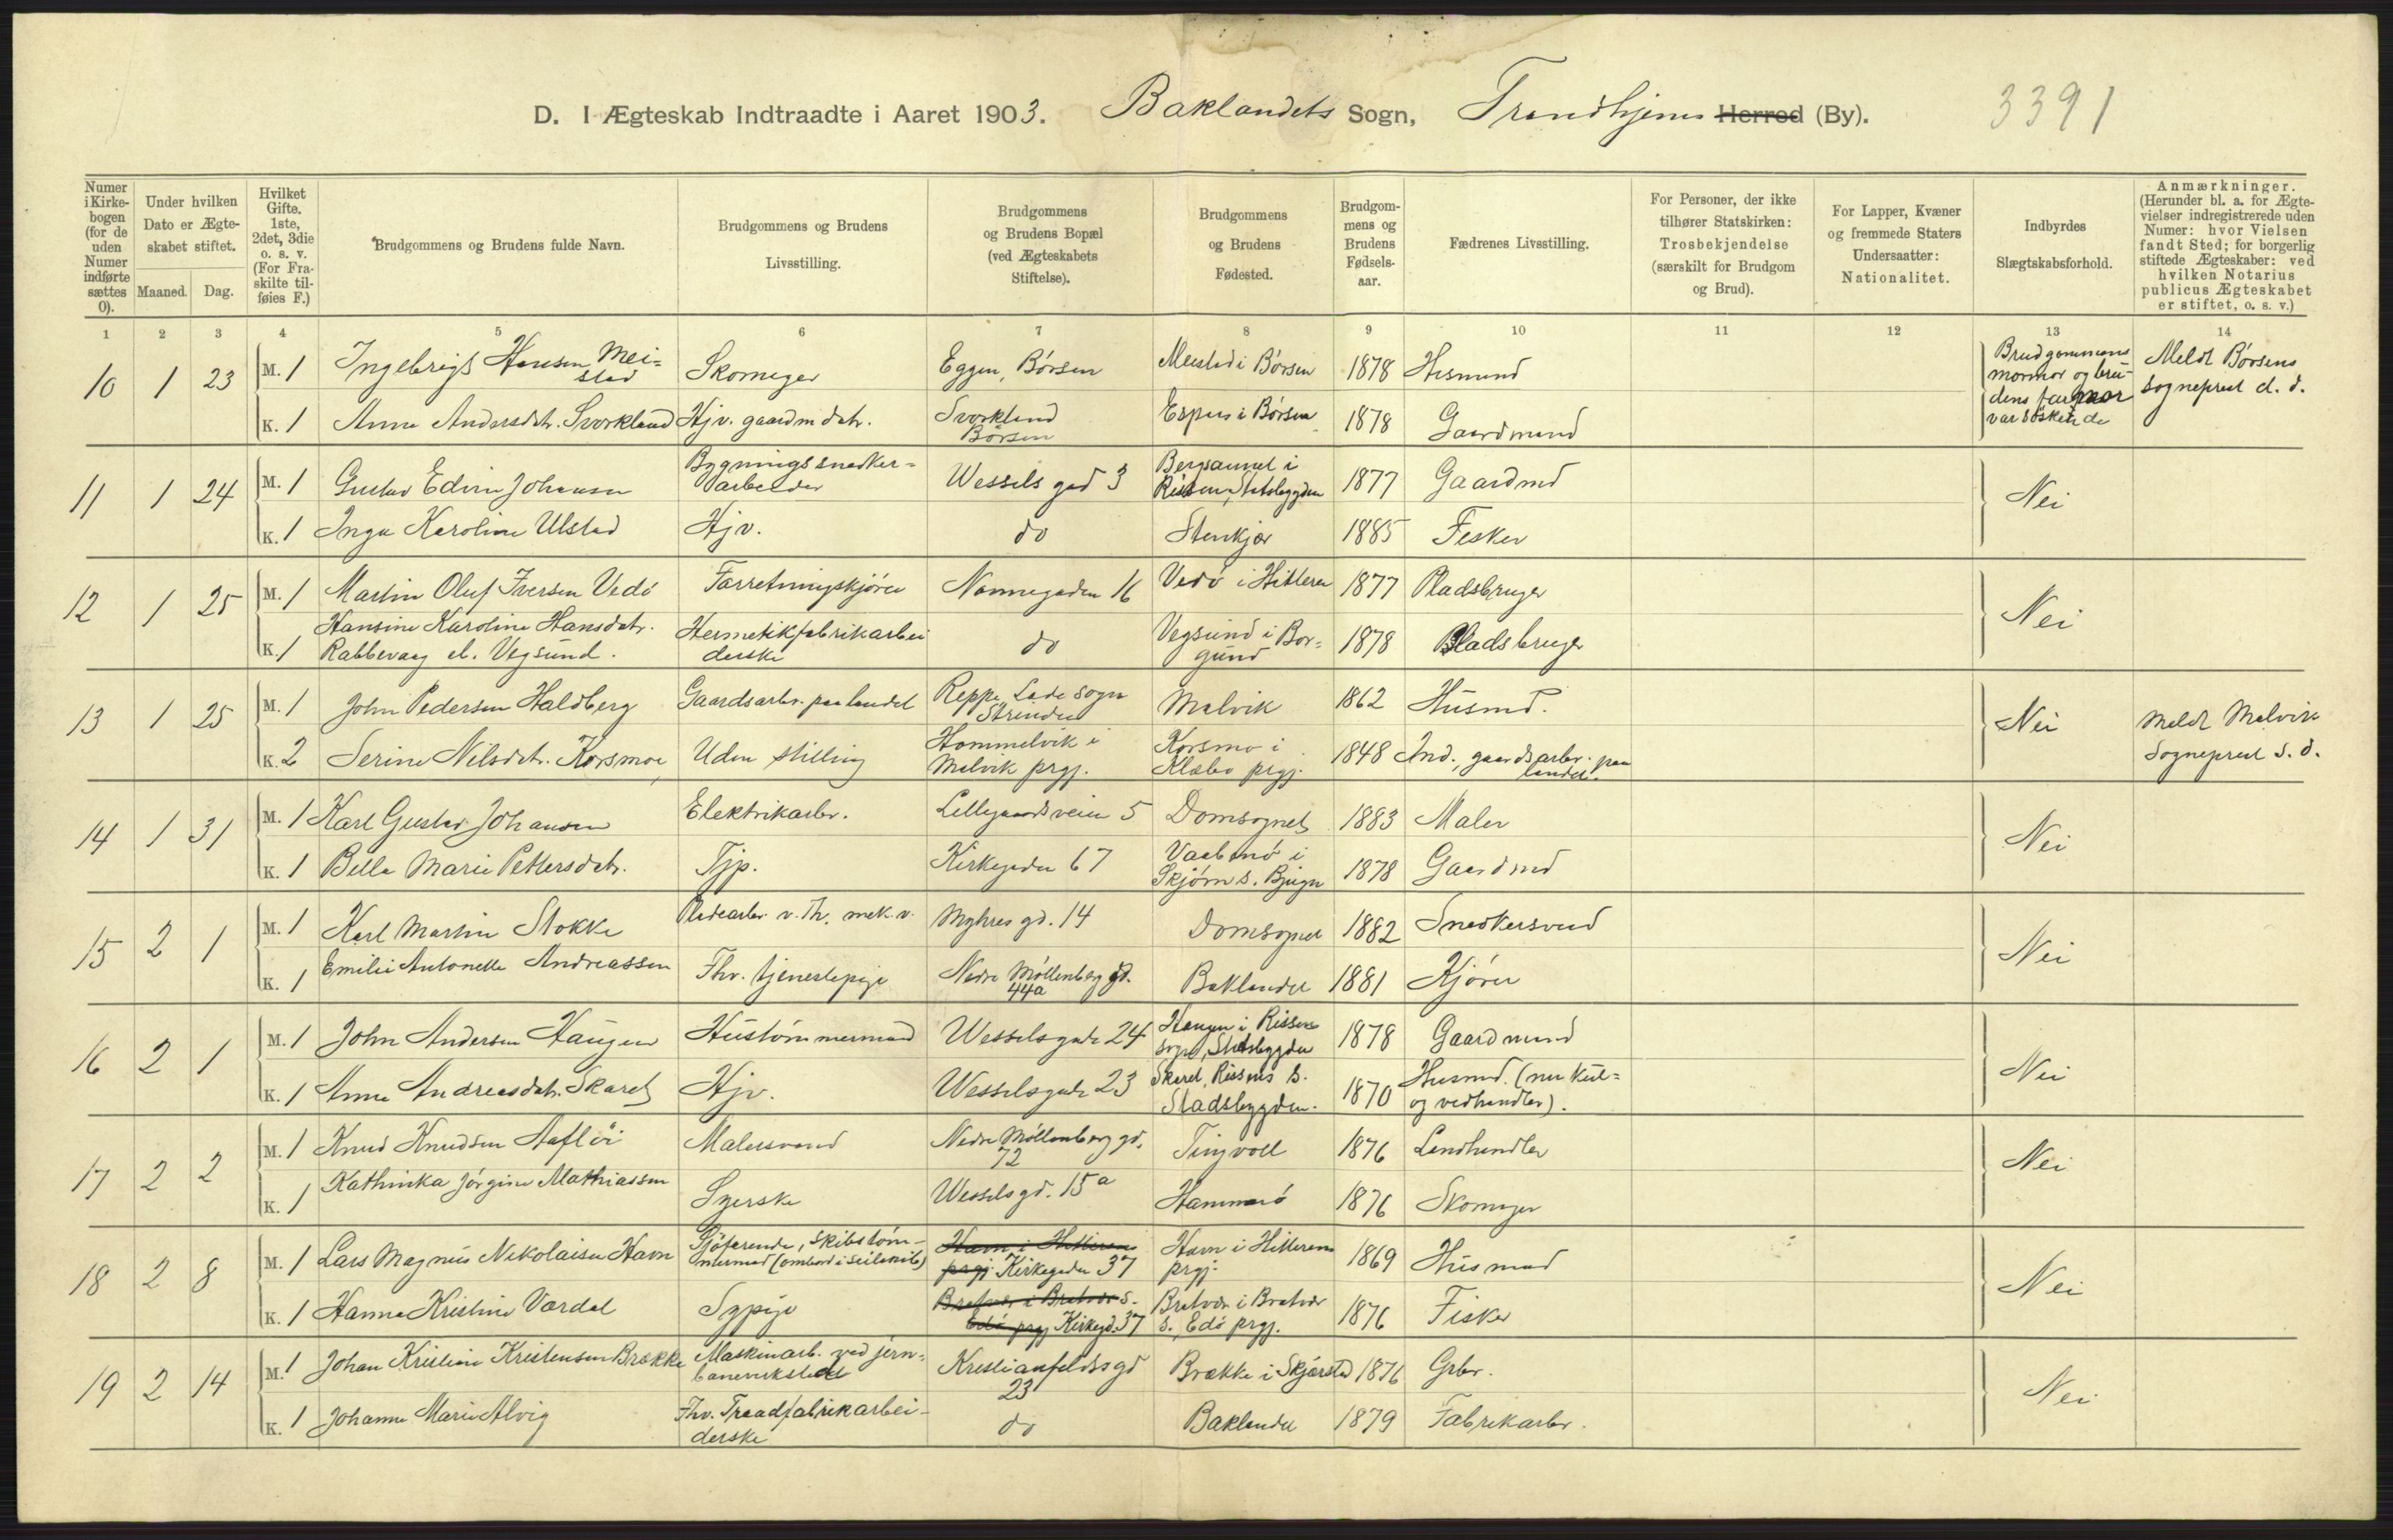 D. I Ægteskab Indtraadte i Aaret 1903. Baklandets Sogn, Trondhjems Herred (By). 3391
Numer i Kirkebogen (for de uden Numer indførte sættes 0).
Under hvilken Dato er Ægteskabet stiftet.
Maaned. Dag.
Hvilket Gifte. 1ste, 2det, 3die o. s. v. (For Fraskilte tilføies F.)
Brudgommens og Brudens fulde Navn.
Brudgommens og Brudens Livsstilling.
Brudgommens og Brudens Bopæl (ved Ægteskabets Stiftelse).
Brudgommens og Brudens Fødested.
Brudgommens og Brudens Fødselsaar.
Fædrenes Livsstilling.
For Personer, der ikke tilhører Statskirken: Trosbekjendelse (særskilt for Brudgom og Brud).
For Lapper, Kvæner og fremmede Staters Undersaatter: Nationalitet.
Indbyrdes Slægtskabsforhold.
Anmærkninger. (Herunder bl. a. for Ægtevielser indregistrerede uden Numer: hvor Vielsen fandt Sted; for borgerlig stiftede Ægteskaber: ved hvilken Notarius publicus Ægteskabet er stiftet, o. s. v.)
1 2 3 4 5 6 7 8 9 10 11 12 13 14
10 1 23 M. 1 Ingebrigt Hansen Meistad Skomager Eggen, Børsen Meistad i Børsen 1878 Husmand Brudgommens mormor og brudens farmor var søskende Meldt Børsens sogneprest d. d.
K. 1 Anne Andersdtr. Svorkland Hjv. gaardm dtr. Svorkland Børsen Espaas i Børsen 1878 Gaardmand
11 1 24 M. 1 Gustav Edvin Johansen Bygningssnedkerarbeider Wessels gad 3 Rissen, Stadsbygden 1877 Gaardmd Nei
K. 1 Inga Karoline Ulstad Hjv. do Stenkjær 1885 Fisker
12 1 25 M. 1 Martin Oluf Iversen Vedø Forretningskjører Nonnegaden 16 Vedø i Hitteren 1877 Pladsbruger Nei
K. 1 Hansine Karoline Hansdatr. Rabbevaag el. Vegsund. Hermetikfabrikarbeiderske do Vegsund i Borgund 1878 Pladsbruger
13 1 25 M. 1 John Pedersen Haldberg Gaardsarbr. paa landet Reppe, Lade sogn Strinden Malvik 1862 Husmd. Nei Meldt Malvik Sogneprest s. d.
K. 2 Serine Nilsdtr. Korsmoe, Uden stilling Hommelvik i Malvik prgj. Korsmo i Klæbo prgj. 1848 Ind., gaardsarbr. paa landet.
14 1 31 M. 1 Karl Gustav Johansen Elektrikarbr. Lillegaardsveien 5 Domsognet 1883 Maler Nei
K. 1 Bella Marie Pettersdtr. Tjp. Kirkegaden 67 i Skjørn s. Bjugn 1878 Gaardmd
15 2 1 M. 1 Karl Martin Stokke Pladearbr. v. Th. mek. v. Myhres gd. 14 Domsognet 1882 Snedkersvend Nei
K. 1 Emilie Antonette Andreassen Fhv. tjenestepige Nedre Møllenberg gd. 44a Baklandet 1881 Kjører
16 2 1 M. 1 John Andersen Haugen Hustømmermand Wesselsgade 24 Haugen i Rissens sogn, Stadsbygden 1878 Gaardmand Nei
K. 1 Anne Andreasdatr. Skaret Hjv. Wesselsgade 23 Skaret, Rissens s. Stadsbygden. 1870 Husmd. (nu kul- og vedhandler).
17 2 2 M. 1 Knud Knudsen Aafløi Malersvend Nedre Møllenberg gd. 72 Tingvoll 1876 Landhandler Nei
K. 1 Kathinka Jørgine Mathiassen Syerske Wesselsgd. 15a Hammerø 1876 Skomager
18 2 8 M. 1 Lars Magnus Nikolaisen Havn Sjøfarende, skibstømmermand (ombord i seilskib) Havn i Hitterens prgj Kirkegaden 37 Havn i Hitterens prgj. 1869 Husmand Nei
K. 1 Hanna Kristine Værdal Sypige Bratvær i Bratvær s. Edø prgj Kirkegd. 37 Bratvær i Bratvær s., Edø prgj. 1876 Fisker
19 2 14 M. 1 Johan Kristian Kristensen Brække Maskinarb. ved jernbaneverkstedet Kristianfeldts gd 23 Brække i Skjørsted 1876 Grbr. Nei
K. 1 Johanne Marie Alvig Fhv. Traadfabrikarbeiderske do Baklandet 1879 Fabrikarbr.